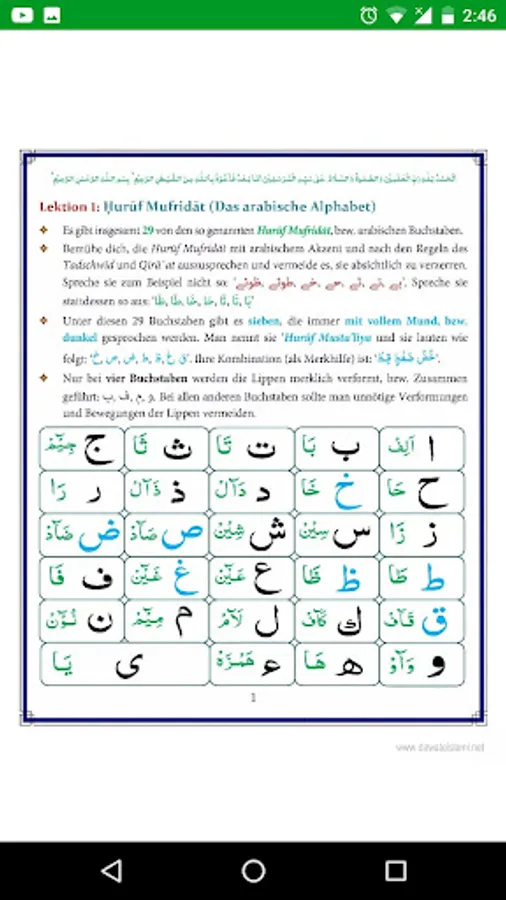 2:46
اَلْحَمْدُ لِلّٰهِ رَبِّ الْعٰلَمِيْنَ وَالصَّلٰوةُ وَالسَّلَامُ عَلٰى سَيِّدِ الْمُرْسَلِيْنَ اَمَّا بَعْدُ فَاَعُوْذُ بِاللّٰهِ مِنَ الشَّيْطٰنِ الرَّجِيْمِ بِسْمِ اللّٰهِ الرَّحْمٰنِ الرَّحِيْمِ
Lektion 1: Ḥurūf Mufridāt (Das arabische Alphabet)
❖ Es gibt insgesamt 29 von den so genannten Ḥurūf Mufridāt, bzw. arabischen Buchstaben.
❖ Bemühe dich, die Ḥurūf Mufridāt mit arabischem Akzent und nach den Regeln des
Tadschwīd und Qirā'at auszusprechen und vermeide es, sie absichtlich zu verzerren.
Spreche sie zum Beispiel nicht so: Spreche sie
stattdessen so aus: 'بَا, تَا, ثَا, حَا, خَا, طَا, ظَا'
❖ Unter diesen 29 Buchstaben gibt es sieben, die immer mit vollem Mund, bzw.
dunkel gesprochen werden. Man nennt sie 'Ḥurūf Musta'liya und sie lauten wie
folgt: 'خ, ص, ض, ط, ظ, غ, ق'. Ihre Kombination (als Merkhilfe) ist: 'خُصَّ ضَغْطٍ قِظْ'.
❖ Nur bei vier Buchstaben werden die Lippen merklich verformt, bzw. Zusammen
geführt: ب, ف, م, و. Bei allen anderen Buchstaben sollte man unnötige Verformungen
und Bewegungen der Lippen vermeiden.
ا اَلِفْ ب بَا ت تَا ث ثَا ج جِيْمْ
ح حَا خ خَا د دَالْ ذ ذَالْ ر رَا
ز زَا س سِيْنْ ش شِيْنْ ص صَادْ ض ضَادْ
ط طَا ظ ظَا ع عَيْنْ غ غَيْنْ ف فَا
ق قَافْ ك كَافْ ل لَامْ م مِيْمْ ن نُوْنْ
و وَاوْ ه هَا ء هَمْزَهْ ى يَا
1
www.dawateislami.net